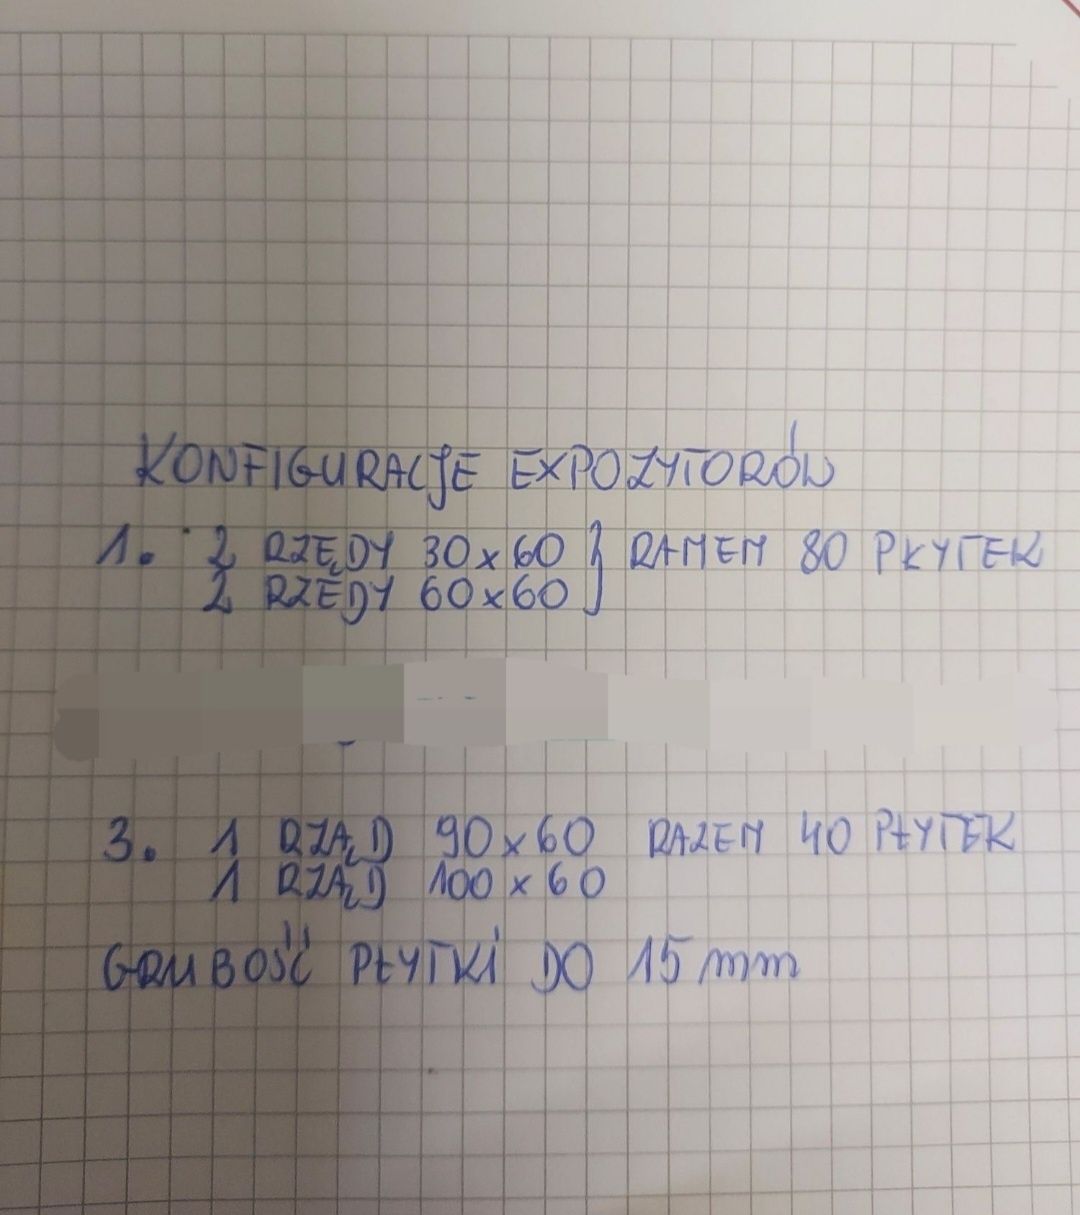 KONFIGURACJE EXPOZYTORÓW
1. 2 RZĘDY 30x60 } RAMEM 80 PKYTEK
2 RZĘDY 60x60
3. 1 RZĄD 90x60 RAZEM 40 PŁYTEK
1 RZĄD 100x60
GRUBOŚĆ PŁYTKI DO 15 mm